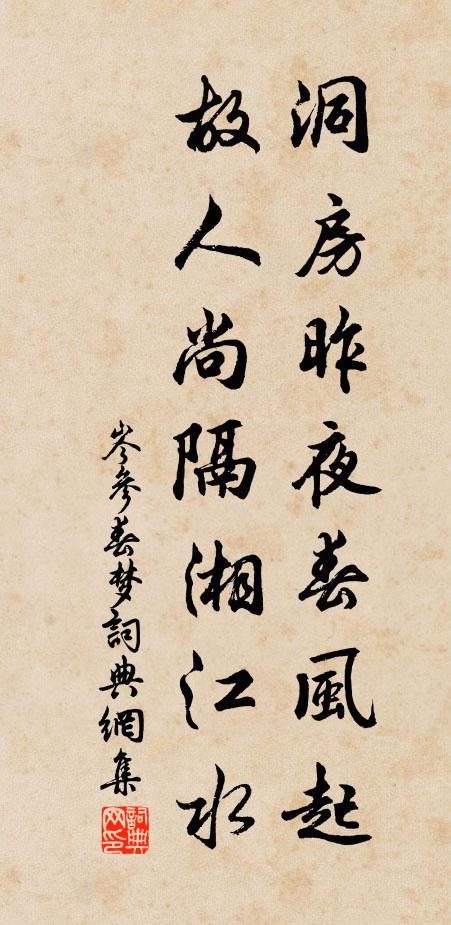 洞房昨夜春風起
故人尚隔湘江水
岑參春梦詞典網集
詞典网印